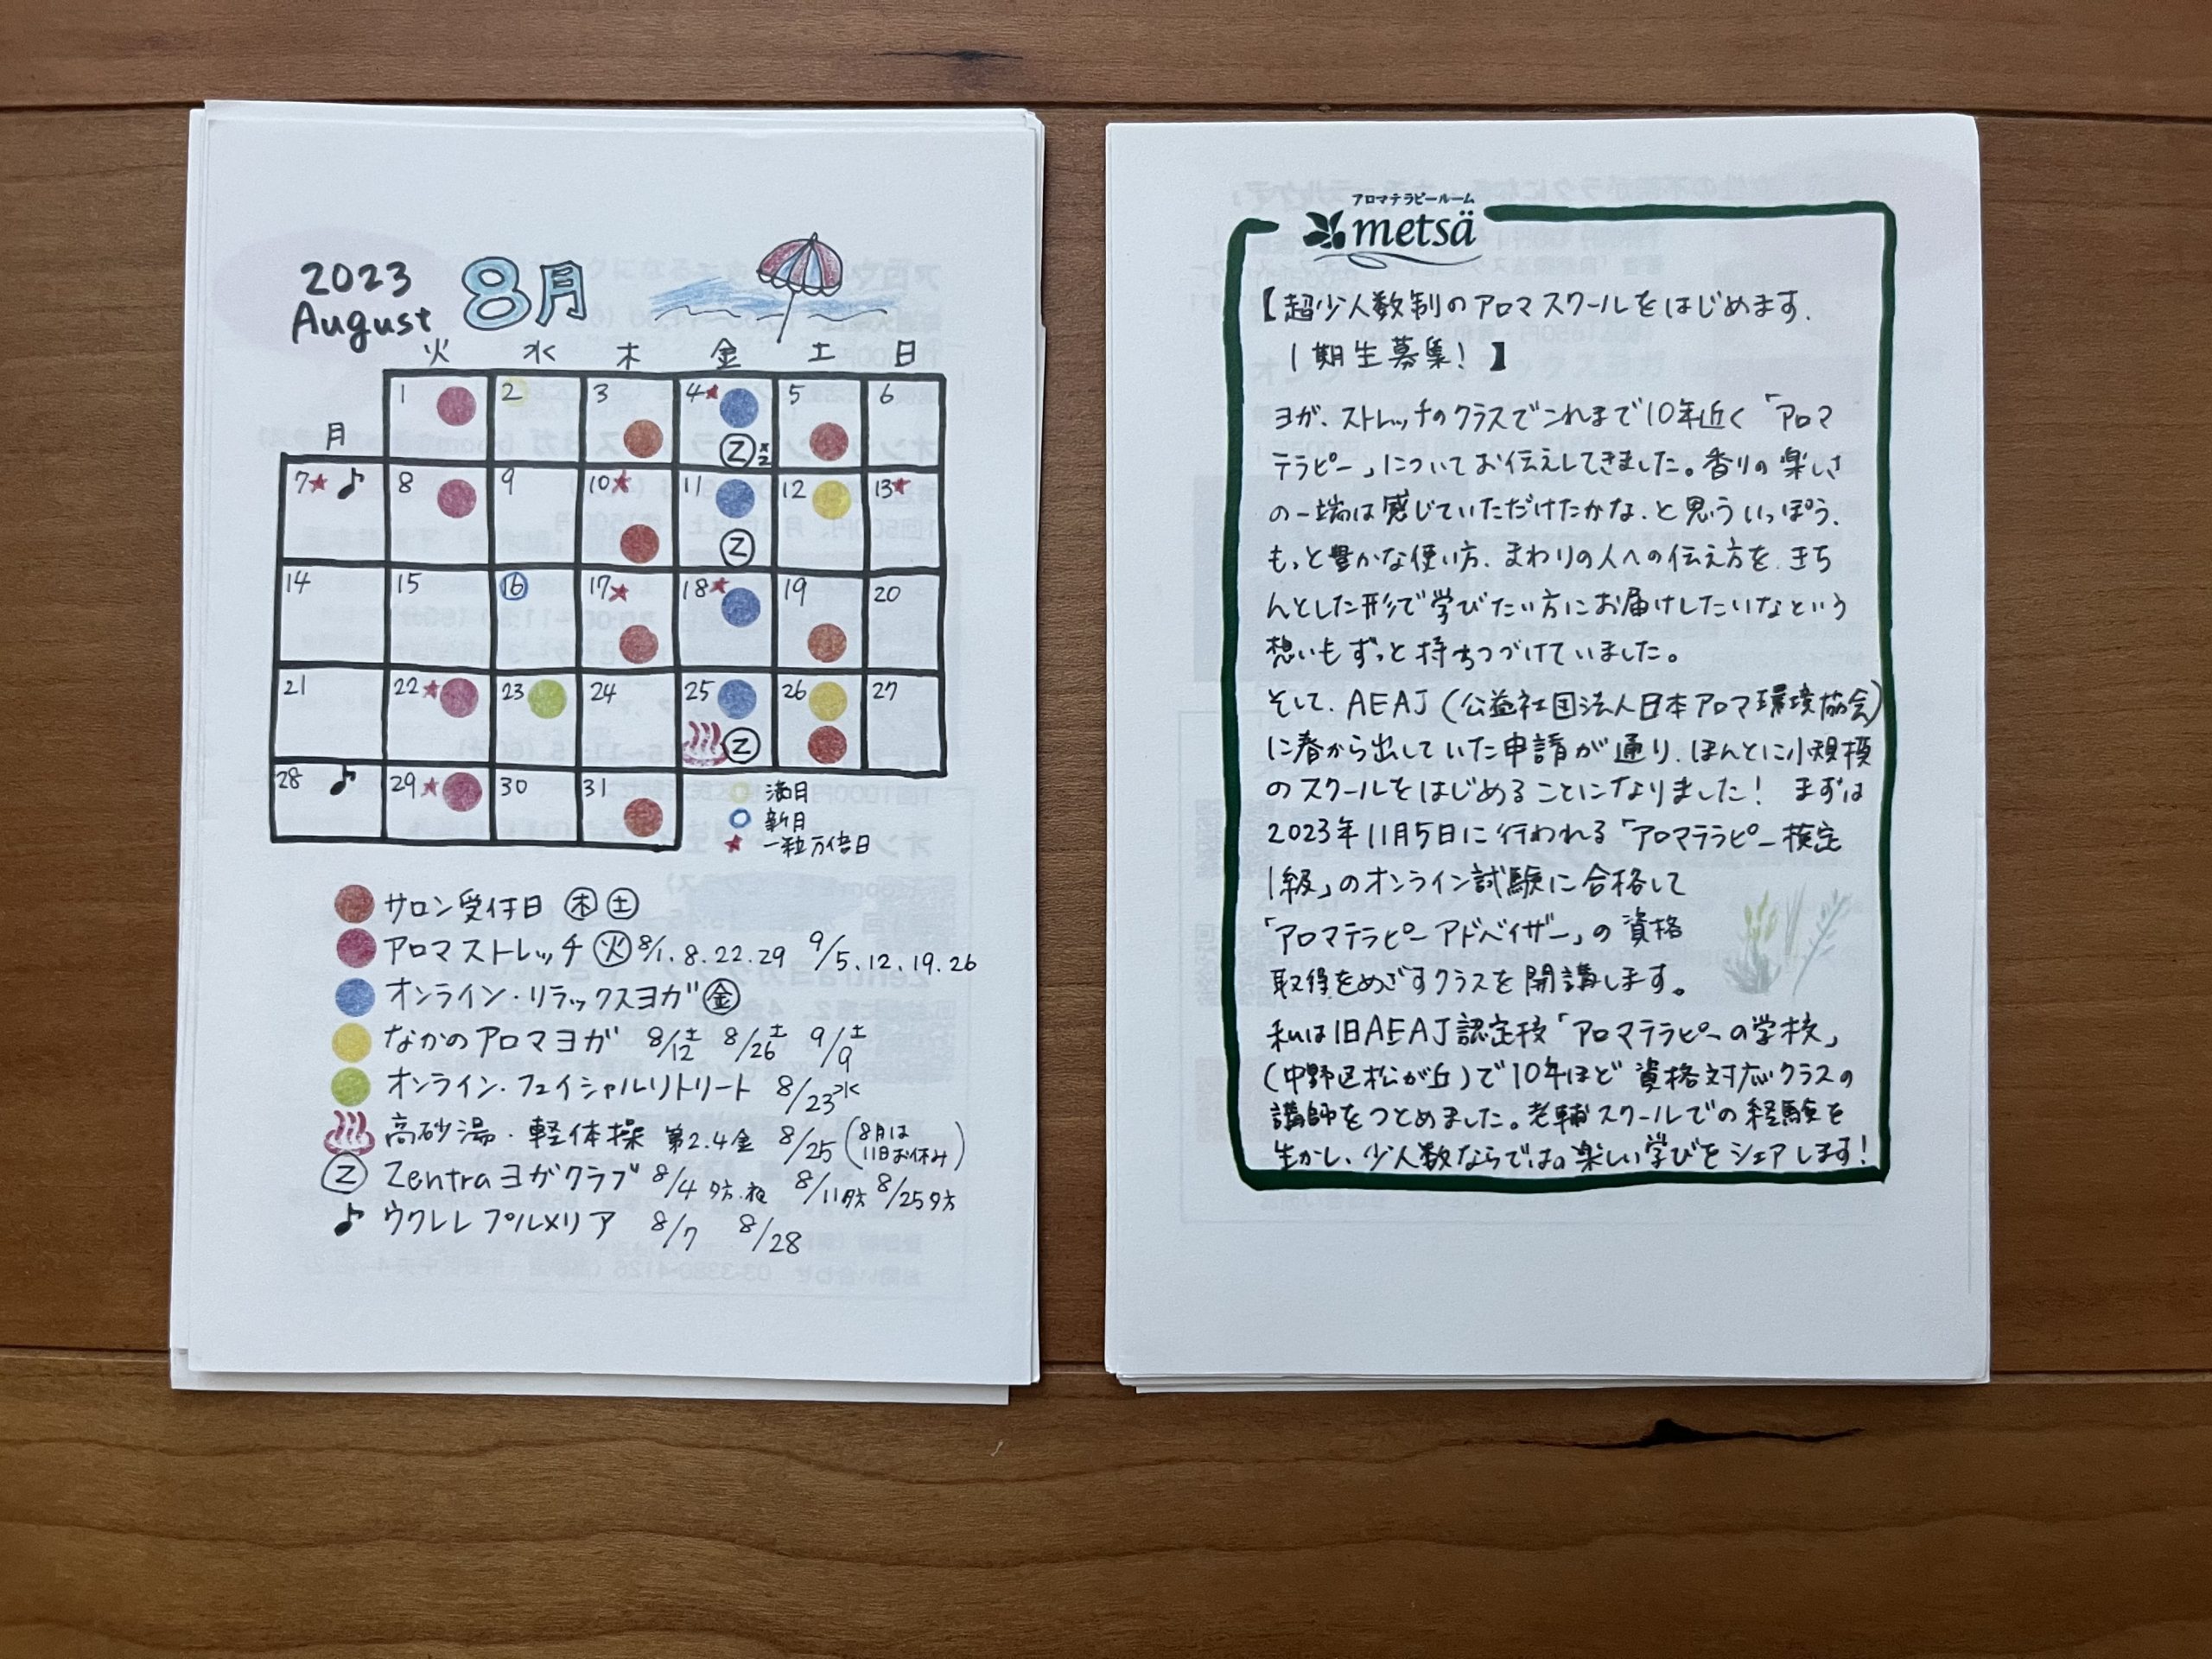 2023
August
8月
月 火 水 木 金 土 日
1 2 3 4 5 6
Z ×2
7 8 9 10 11 12 13
Z
14 15 16 17 18 19 20
21 22 23 24 25 26 27
Z
28 29 30 31
満月
新月
一粒万倍日
サロン受付日 木 土
アロマストレッチ 火 8/1.8.22.29 9/5.12.19.26
オンライン・リラックスヨガ 金
なかのアロマヨガ 8/12土 8/26土 9/9土
オンライン・フェイシャルリトリート 8/23水
高砂湯・軽体操 第2.4金 8/25(8月は11日お休み)
Z Zentraヨガクラブ 8/4夕方.夜 8/11夕方 8/25夕方
ウクレレ プルメリア 8/7 8/28
アロマテラピールーム
metsä
【超少人数制のアロマスクールをはじめます.
1期生募集!】
ヨガ、ストレッチのクラスでこれまで10年近く「アロマ
テラピー」についてお伝えしてきました。香りの楽しさ
の一端は感じていただけたかな、と思ういっぽう、
もっと豊かな使い方、まわりの人への伝え方を、きち
んとした形で学びたい方にお届けしたいなという
想いもずっと持ちつづけていました。
そして、AEAJ(公益社団法人日本アロマ環境協会)
に春から出していた申請が通り、ほんとに小規模
のスクールをはじめることになりました! まずは
2023年11月5日に行われる「アロマテラピー検定
1級」のオンライン試験に合格して
「アロマテラピーアドバイザー」の資格
取得をめざすクラスを開講します。
私は旧AEAJ認定校「アロマテラピーの学校」
(中野区松が丘)で10年ほど資格対応クラスの
講師をつとめました。老輔スクールでの経験を
生かし、少人数ならではの楽しい学びをシェアします!